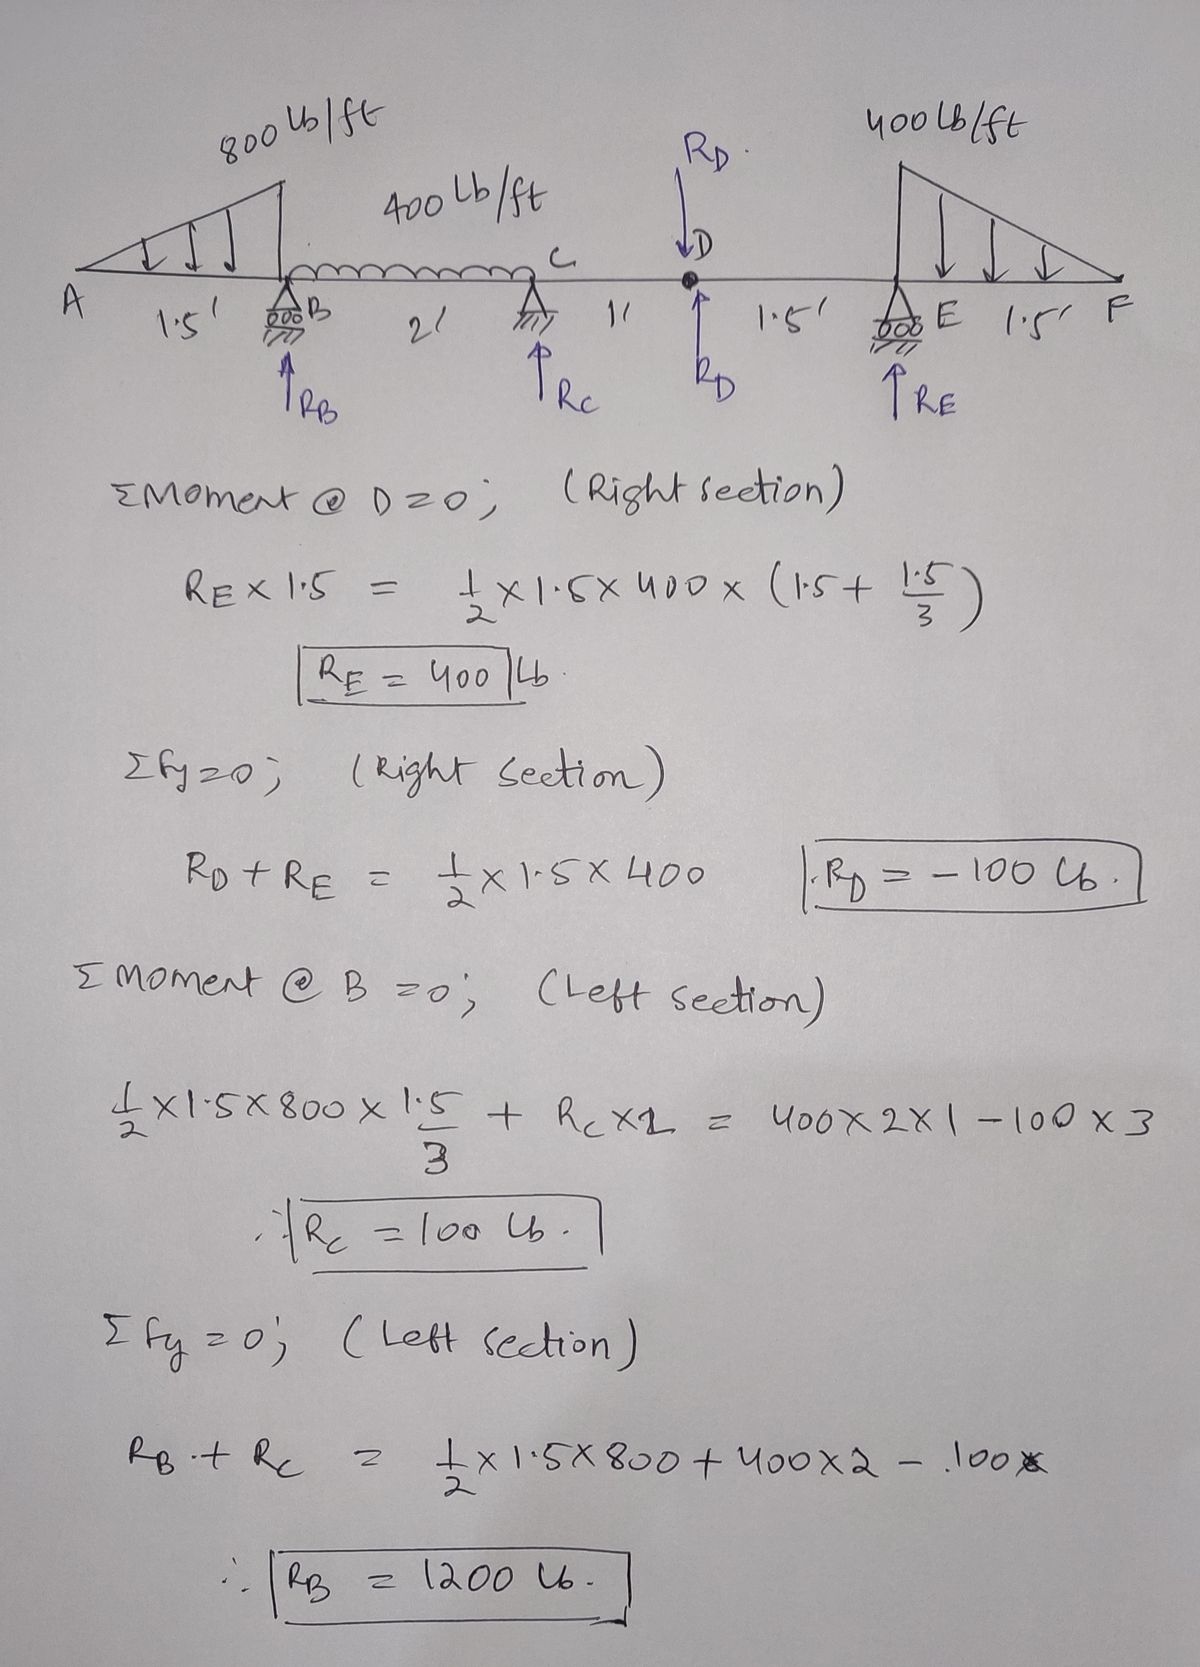 800 lb/ft
400 lb/ft
400 lb/ft
RD.
D
C
A
1.5'
B
2'
1'
1.5'
E
1.5'
F
RB
RC
RD
RE
ΣMoment @ D=0; (Right section)
RE x 1.5 = 1/2 x 1.5 x 400 x (1.5 + 1.5/3)
RE = 400 lb.
Σfy=0; (Right section)
RD + RE = 1/2 x 1.5 x 400 RD = -100 lb.
Σ Moment @ B =0; (Left section)
1/2 x 1.5 x 800 x 1.5/3 + RC x 2 = 400 x 2 x 1 - 100 x 3
∴ RC = 100 lb.
Σ fy = 0; (Left section)
RB + RC = 1/2 x 1.5 x 800 + 400 x 2 - 100
∴ RB = 1200 lb.